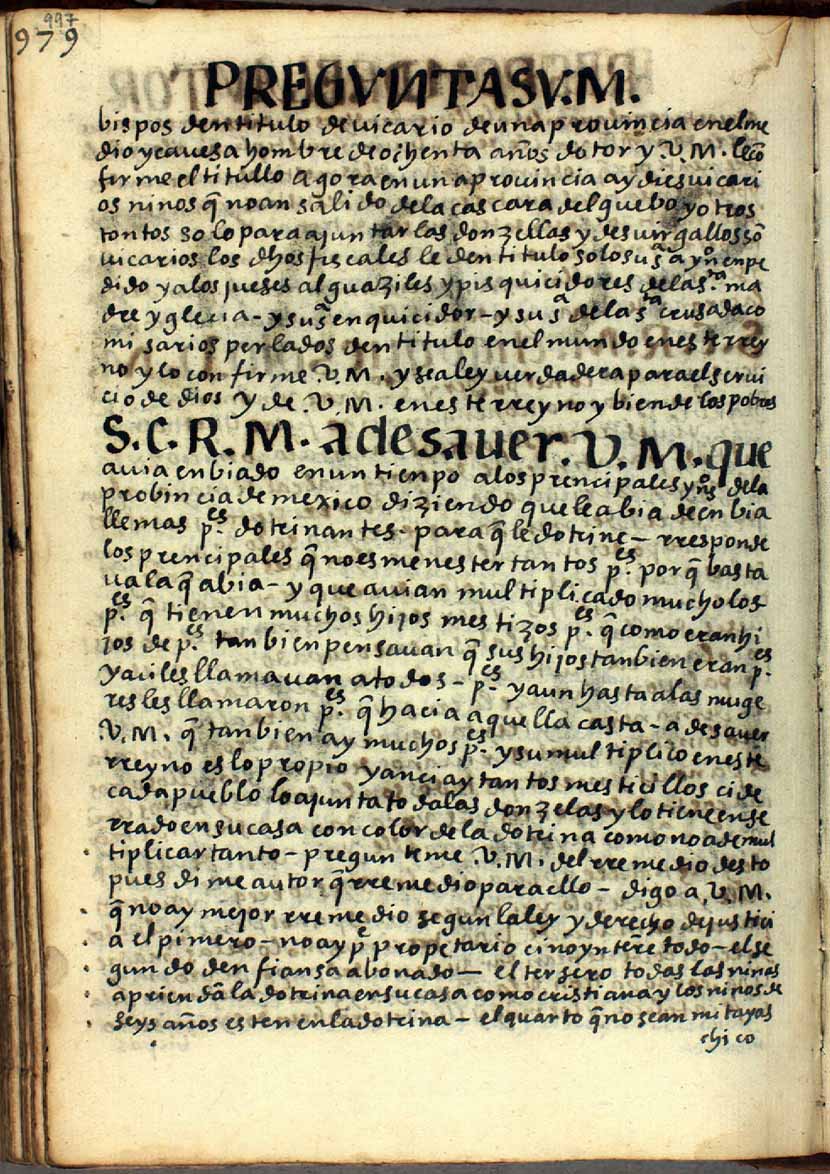 997
979
PREGVNTASV.M.
bispos den titulo de uicario de una prouincia en el me
dio y cauesa hombre de ochenta años dotor y .V.M. le cõ
firme el titullo agora en una prouincia ay dies uicari
os ninos q̃ no an salido de la cascara del guebo y otros
tontos solo para ajuntar las donzellas y desurr gallos sõ
uicarios los dhos fiscales le den titulo solo su sª a yñº enpe
dido y a los jueses alguaziles y pisquicidores de la sta ma
dre yglecia - y su sª enquicidor - y su sª de la sta crusada co
misarios perlados den titulo en el mundo en este rrey
no y lo confirme .V.M. y sea ley uerdadera para el serui
cio de dios y de .V.M. en este rreyno y bien de los pobres
S.C.R.M. a de sauer .V.M. que
auia enbiado en un tienpo a los prencipales yñºs de la
probincia de mexico diziendo que le abia de enbia
lle mas p.es dotrinantes - para q̃ le dotrine - rresponde
los prencipales q̃ no es menester tantos p.es porq̃ basta
ua la q̃ abia - y que auian multiplicado mucho los
p.es q̃ tienen muchos hijos mestizos p.es q̃ como eran hi
jos de p.es tanbien pensauan q̃ sus hijos tanbien eran p.es
y aci les llamauan a todos - p.es y aun hasta a las muge
res les llamaron p.es q̃ hacia aquella casta - a de sauer
.V.M. q̃ tanbien ay muchos p.es y su multiplico en este
rreyno es lo propio y anci ay tantos mesticillos ci de
cada pueblo lo ajunta todas las donzelas y lo tiene ense
rrado en su casa con color de la dotrina como no a de mul
tiplicar tanto - pregunteme .V.M. del rremedio desto
pues dime autor q̃ rremedio para ello - digo a .V.M.
q̃ no ay mejor rremedio segun la ley y derecho de justici
a el pimero - no ay p.e propetario cino ynterẽ todo - el se
gundo den fiansa abonado - el tersero todas las ninas
apriendã la dotrina en su casa como cristiana y los ninos de
seys años esten en la dotrina - el quarto q̃ no sean mitayos
chico